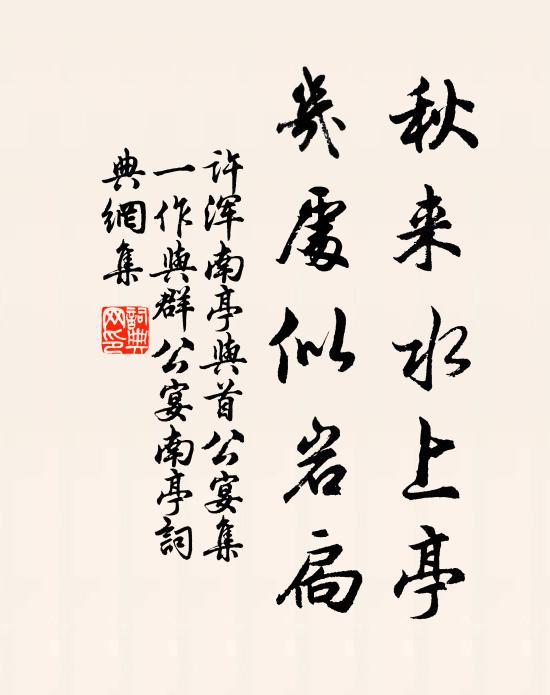 秋来水上亭
几处似岩扃
许浑南亭与首公宴集
一作与群公宴南亭词
典网集
词典网印